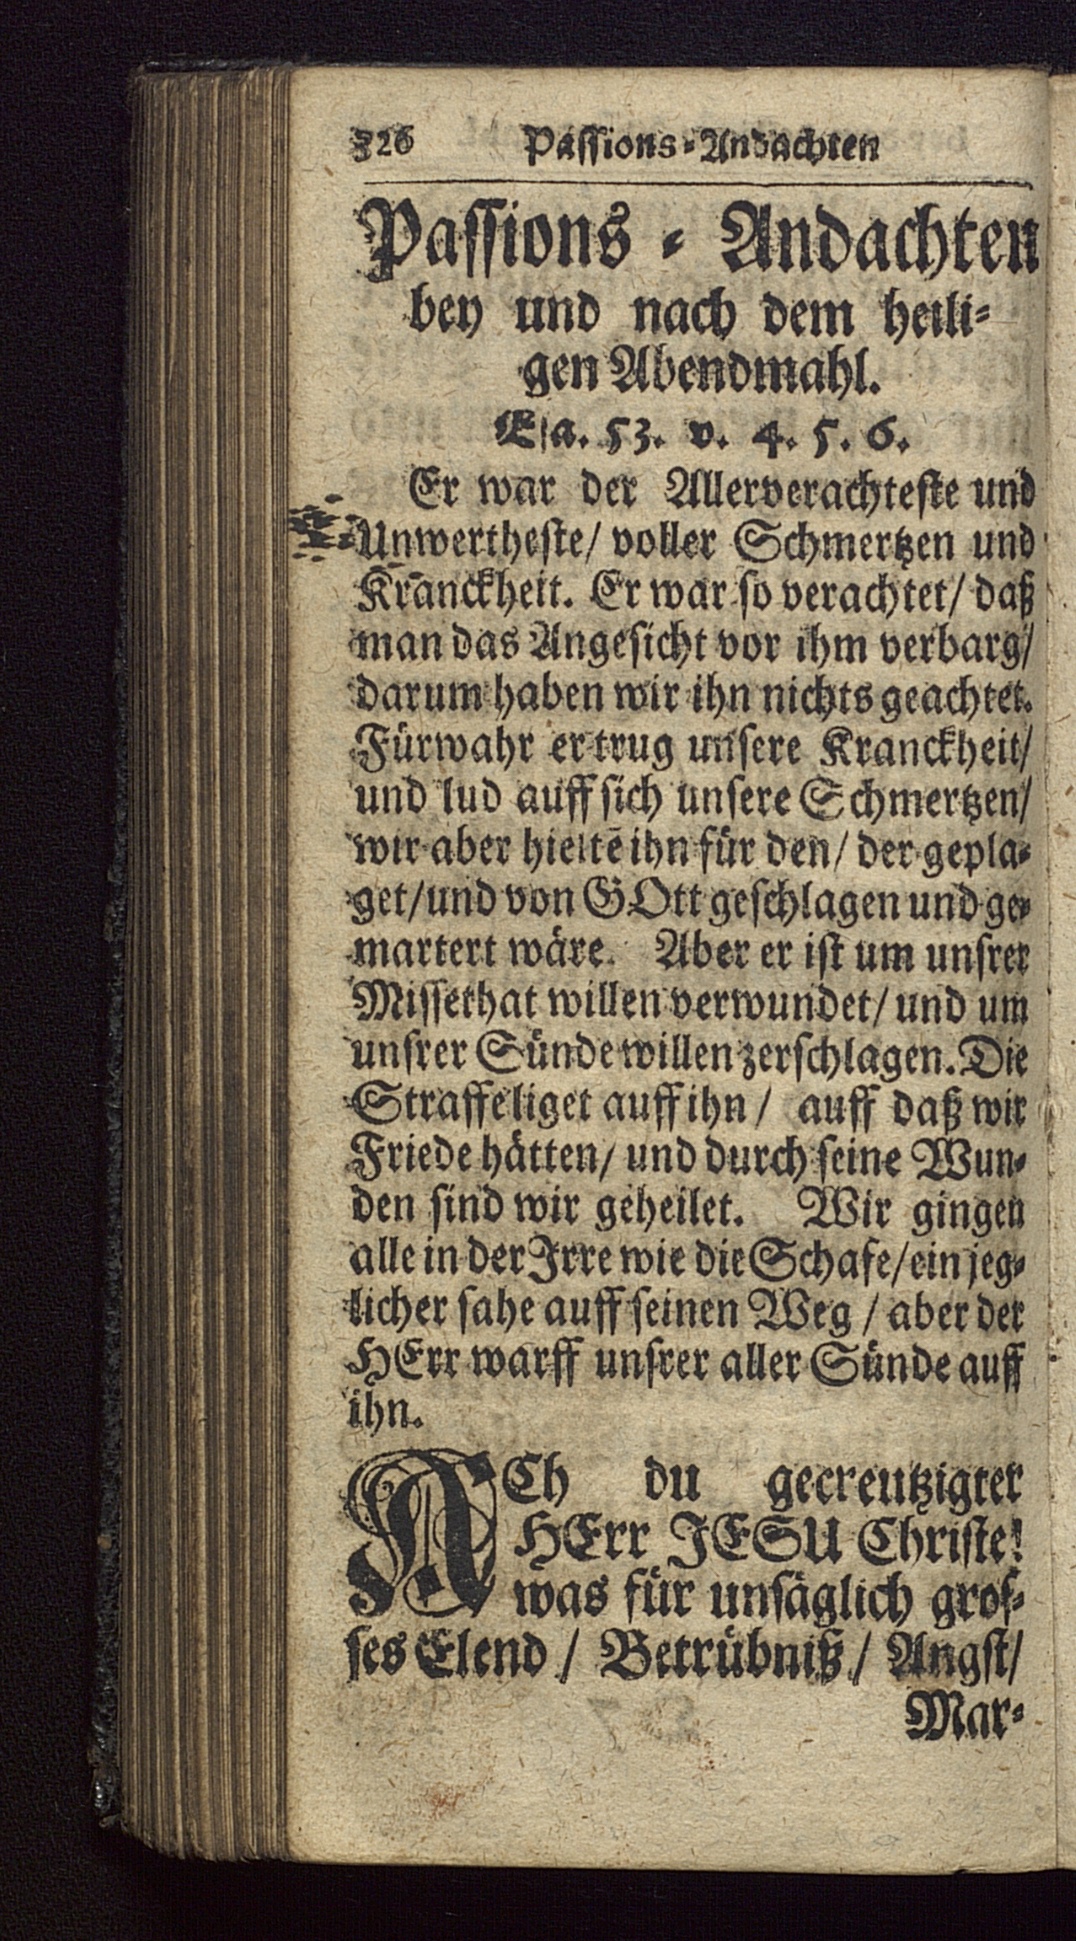 326 Passions-Andachten
Passions-Andachten
bey und nach dem heili-
gen Abendmahl.
Esa. 53. v. 4. 5. 6.
Er war der Allerverachteste und
Unwertheste/ voller Schmertzen und
Kranckheit. Er war so verachtet/ daß
man das Angesicht vor ihm verbarg/
darum haben wir ihn nichts geachtet.
Fürwahr er trug unsere Kranckheit/
und lud auff sich unsere Schmertzen/
wir aber hieltē ihn für den/ der gepla-
get/ und von GOtt geschlagen und ge-
martert wäre. Aber er ist um unsrer
Missethat willen verwundet/ und um
unsrer Sünde willen zerschlagen. Die
Straffe liget auff ihn/ auff daß wir
Friede hätten/ und durch seine Wun-
den sind wir geheilet. Wir gingen
alle in der Irre wie die Schafe/ ein jeg-
licher sahe auff seinen Weg/ aber der
HErr warff unsrer aller Sünde auff
ihn.
ACh du gecreutzigter
HErr JESU Christe!
was für unsäglich gros-
ses Elend/ Betrübniß/ Angst/
Mar-